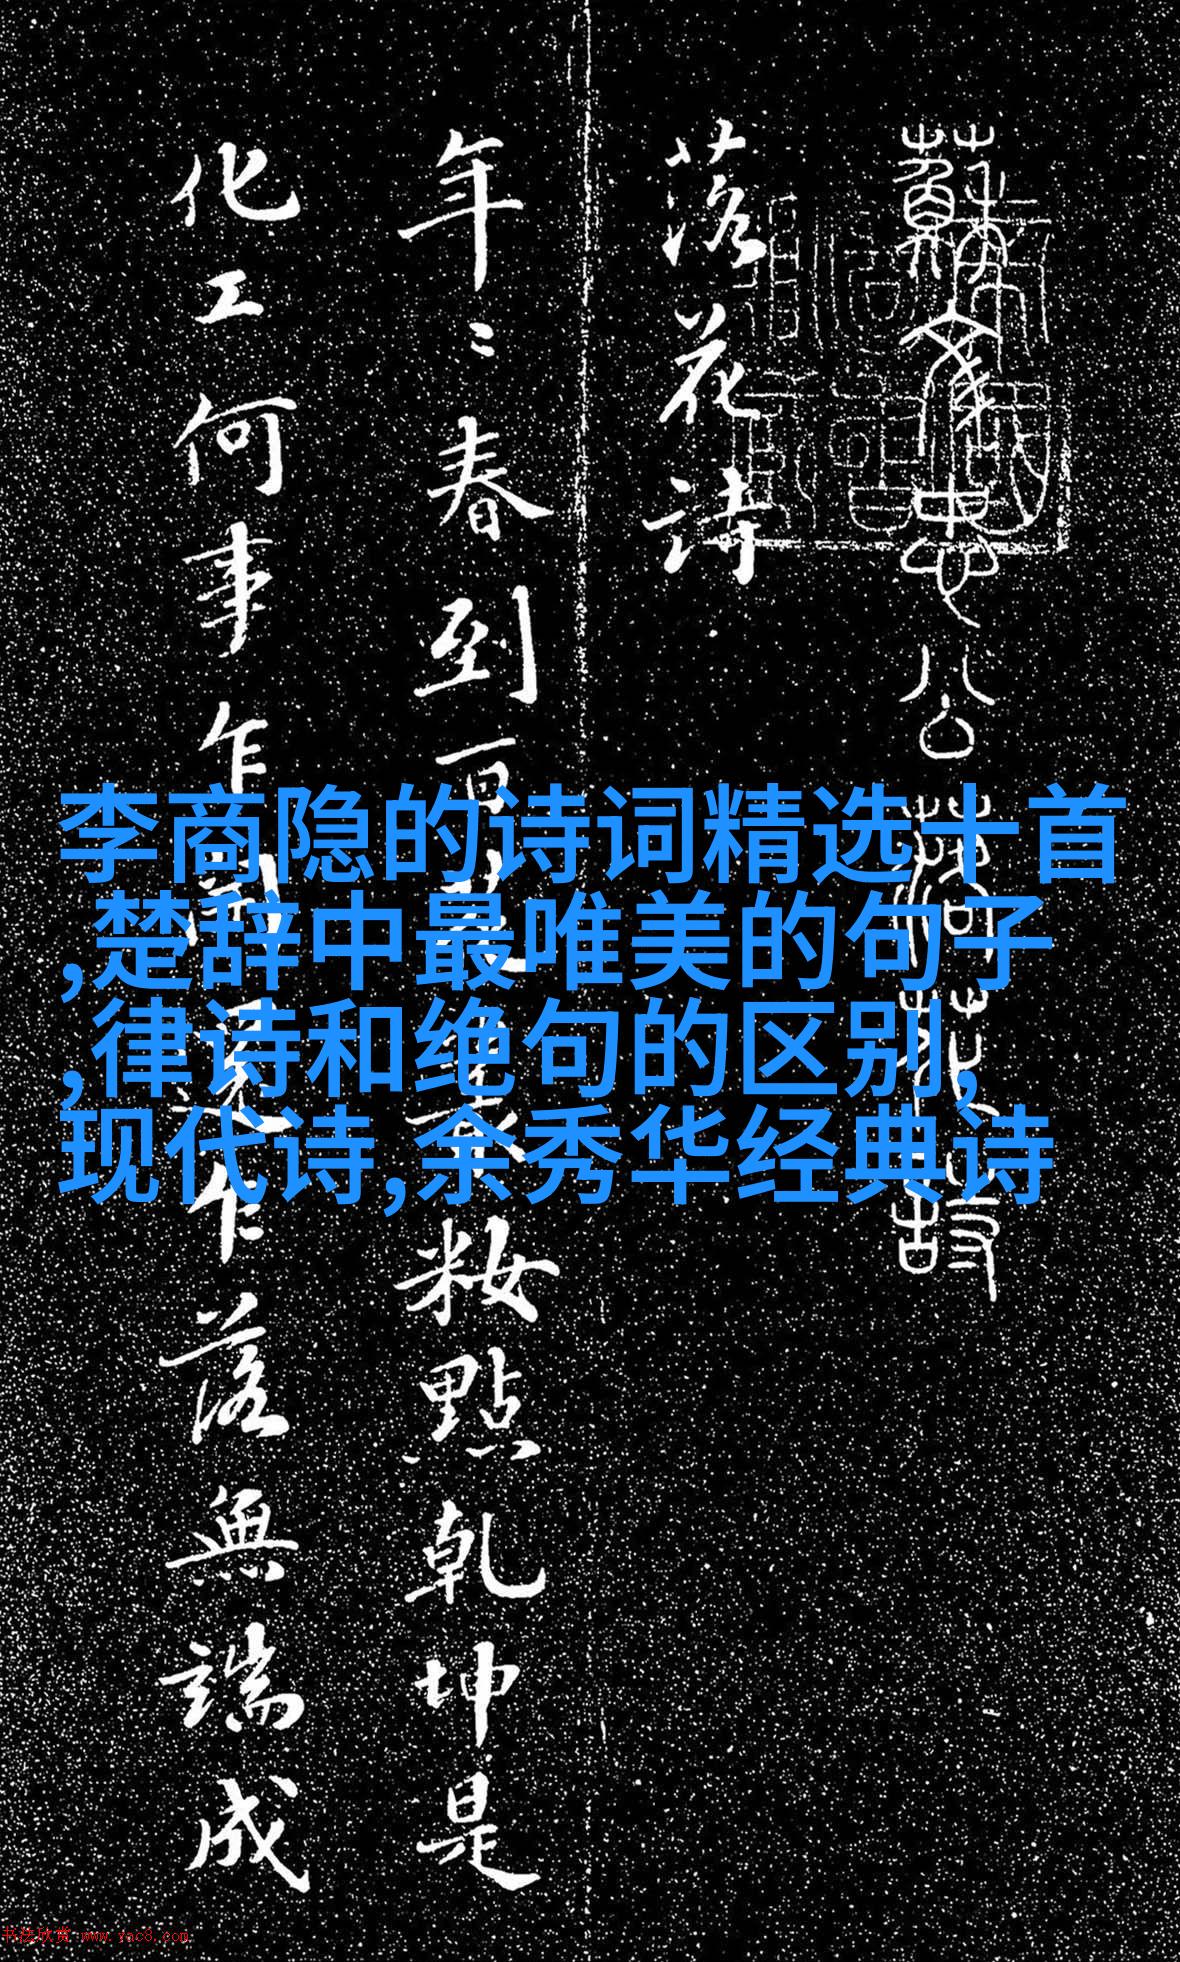 蘇文忠公
落花詩
年〻春到百花粧點乾坤是
化工何事乍開還乍落無端成
李商隐的诗词精选十首
,楚辞中最唯美的句子
,律诗和绝句的区别,
现代诗,余秀华经典诗
书法欣赏 www.yac8.com